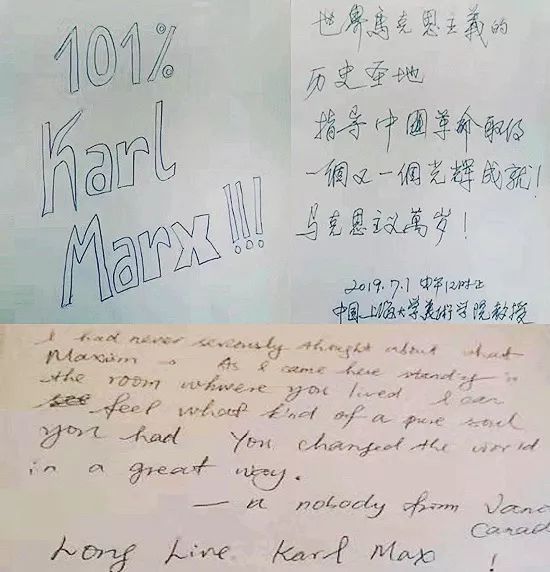 101%
Karl
Marx!!!
世界馬克思主義的
历史圣地
指导中國革命取得
一個又一個光輝成就!
马克思主义萬岁!
2019.7.1 中午12时正
中国上海大学美術学院教授
I had never seriously thought about what
Maxism As I came here standing in
the room whwere you lived I can
feel what kind of a pure soul
you had You changed the world
in a great way.
— a nobody from Vanc
Canad
Long Live Karl Max !